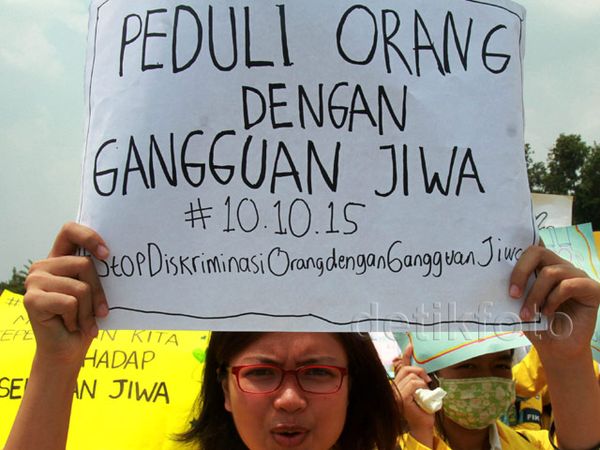 PEDULI ORANG
DENGAN
GANGGUAN JIWA
#10.10.15
#StopDiskriminasiOrangdenganGangguanJiwa
detikfoto
KITA
HADAP
JIWA
FIK